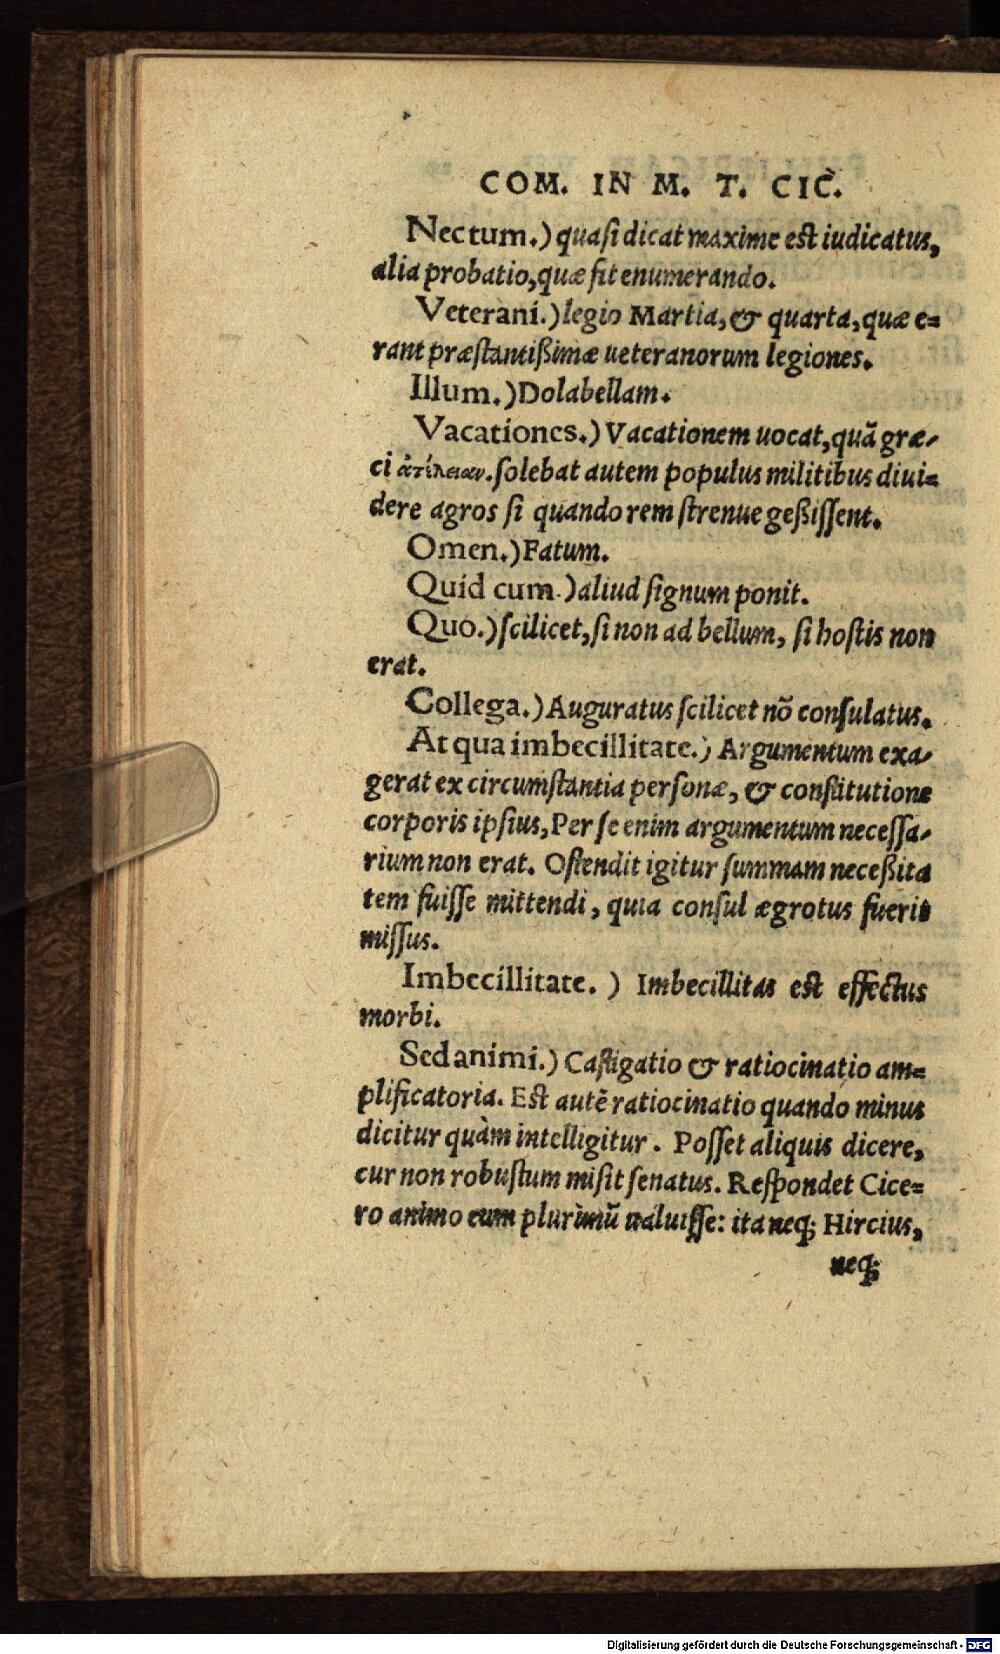 COM. IN M. T. CIC̃.
Nec tum.) quasi dicat maxime est iudicatus,
alia probatio, quæ fit enumerando.
Veterani.) legio Martia, & quarta, quæ e=
rant præstantißimæ ueteranorum legiones.
Illum.) Dolabellam.
Vacationes.) Vacationem uocat, quã græ-
ci ἀτέλειαν. solebat autem populus militibus diui=
dere agros si quando rem strenue geßissent.
Omen.) Fatum.
Quid cum.) aliud signum ponit.
Quo.) scilicet, si non ad bellum, si hostis non
erat.
Collega.) Auguratus scilicet nõ consulatus.
At qua imbecillitate.) Argumentum exa-
gerat ex circumstantia personæ, & constitutione
corporis ipsius, Per se enim argumentum necessa-
rium non erat. Ostendit igitur summam neceßita
tem fuisse mittendi, quia consul ægrotus fuerit
missus.
Imbecillitate.) Imbecillitas est effectus
morbi.
Sed animi.) Castigatio & ratiocinatio am=
plificatoria. Est autẽ ratiocinatio quando minus
dicitur quàm intelligitur. Posset aliquis dicere,
cur non robustum misit senatus. Respondet Cice=
ro animo eum plurimũ ualuisse: ita neq; Hircius,
neq;
Digitalisierung gefördert durch die Deutsche Forschungsgemeinschaft - DFG